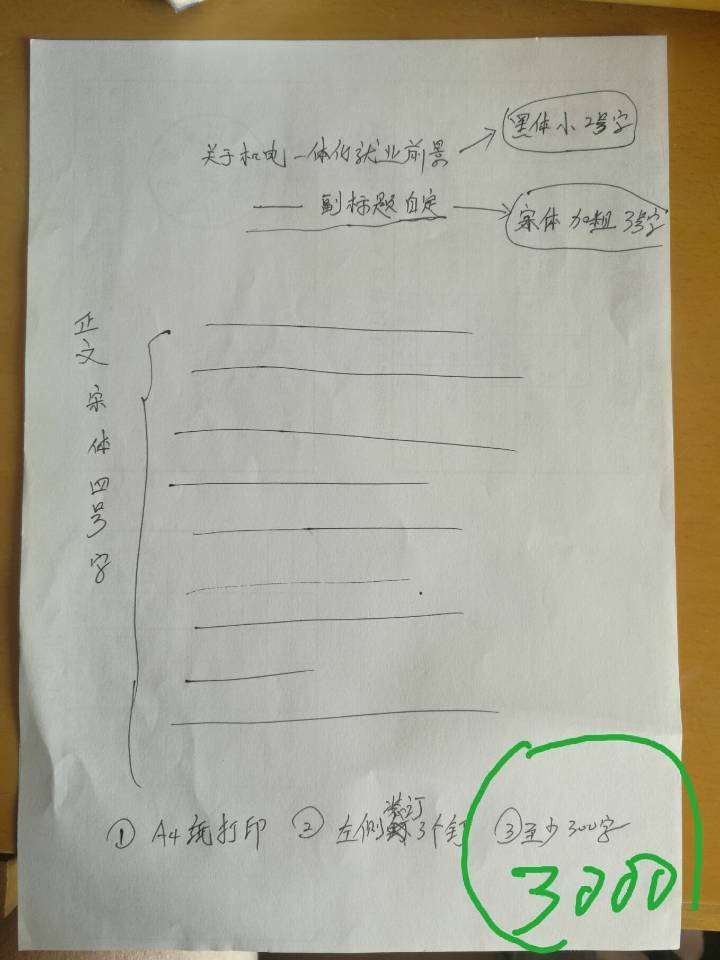 关于机电一体化就业前景 黑体小2号字
—— 副标题自定 宋体加粗3号字
正文宋体四号字
① A4纸打印 ② 左侧装订3个钉 ③至少300字
3000